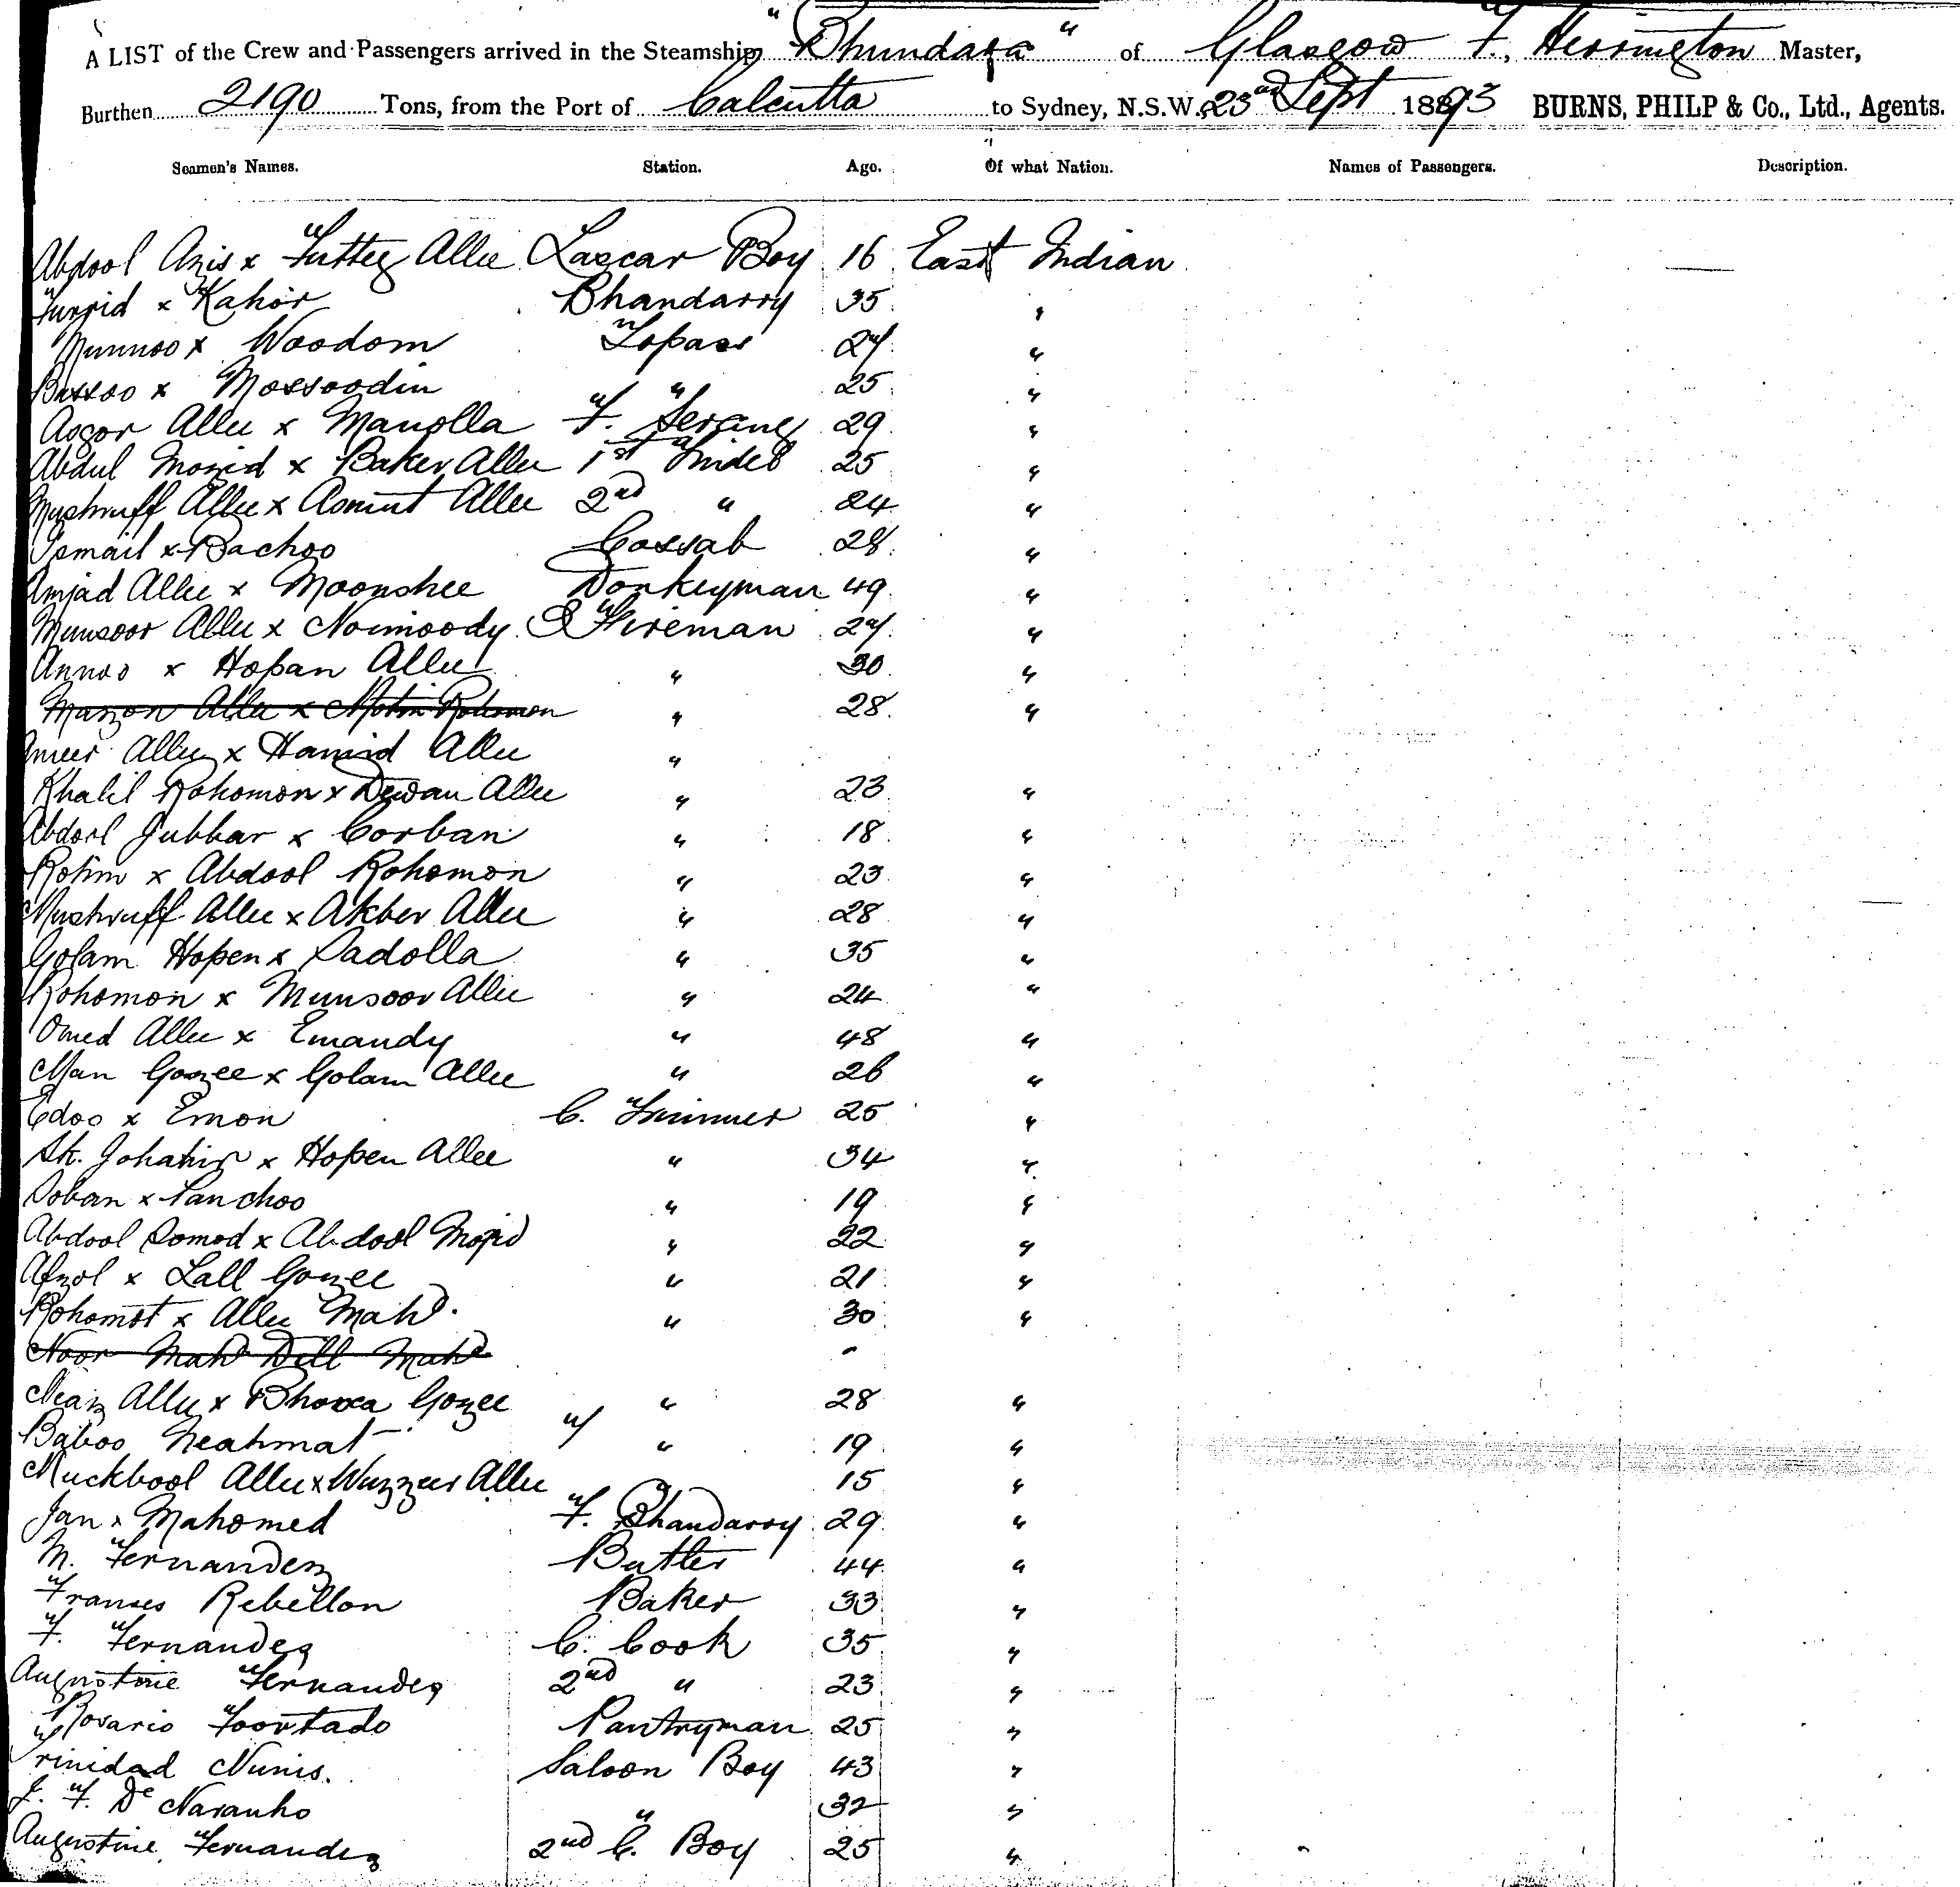 A LIST of the Crew and Passengers arrived in the Steamship "Bhundara" of Glasgow F. Herrington Master,
Burthen 2190 Tons, from the Port of Calcutta to Sydney, N.S.W., 23rd Sept 1893 BURNS, PHILP & Co., Ltd., Agents.
Seamen's Names. Station. Age. Of what Nation. Names of Passengers. Description.
Abdool Azis x Futteg Allee Lascar Boy 16 East Indian
Furrid x Kahor Bhandarry 35 "
Munnoo x Woodom Topass 27 "
Bussoo x Mossoodin " 25 "
Asgor Allee x Manolla F. Serang 29 "
Abdul Mozid x Baker Allee 1st Tindel 25 "
Mushruff Allee x Asmut Allee 2nd " 24 "
Ismail x Bachoo Cassab 28 "
Amjad Allee x Moonshee Donkeyman 49 "
Munsoor Allee x Noimoody Fireman 27 "
Annoo x Hopan Allee " 30 "
Manzon Allee x Motin Rohomon " 28 "
Ameer Allee x Hamid Allee "
Khalil Rohomon x Dewan Allee " 23 "
Abdool Jubbar x Corban " 18 "
Rohim x Abdool Rohomon " 23 "
Mushruff Allee x Akber Allee " 28 "
Golam Hopen x Sadolla " 35 "
Rohomon x Munsoor Allee " 24 "
Omed Allee x Emandy " 48 "
Man Gozee x Golam Allee " 26 "
Edoo x Emon C. Trimmer 25 "
Sk. Johahir x Hopen Allee " 34 "
Soban x Panchoo " 19 "
Abdool Somod x Abdool Mojid " 22 "
Afzol x Lall Gozee " 21 "
Rohomot x Allee Mahd. " 30 "
Noor Mahd Dill Mahd "
Neaz Allee x Bhoxa Gozee " 28 "
Baboo Neahmat " 19 "
Muckbool Allee x Wuzzeer Allee " 15 "
Jan x Mahomed F. Bhandarry 29 "
M. Fernandez Butler 44 "
Franses Rebellon Baker 33 "
F. Fernandes C. Cook 35 "
Augustine Fernandes 2nd " 23 "
Rosario Foortado Pantryman 25 "
Trinidad Nunis. Saloon Boy 43 "
J. F. De Naranho " 32 "
Augustine Fernandes 2nd C. Boy 25 "